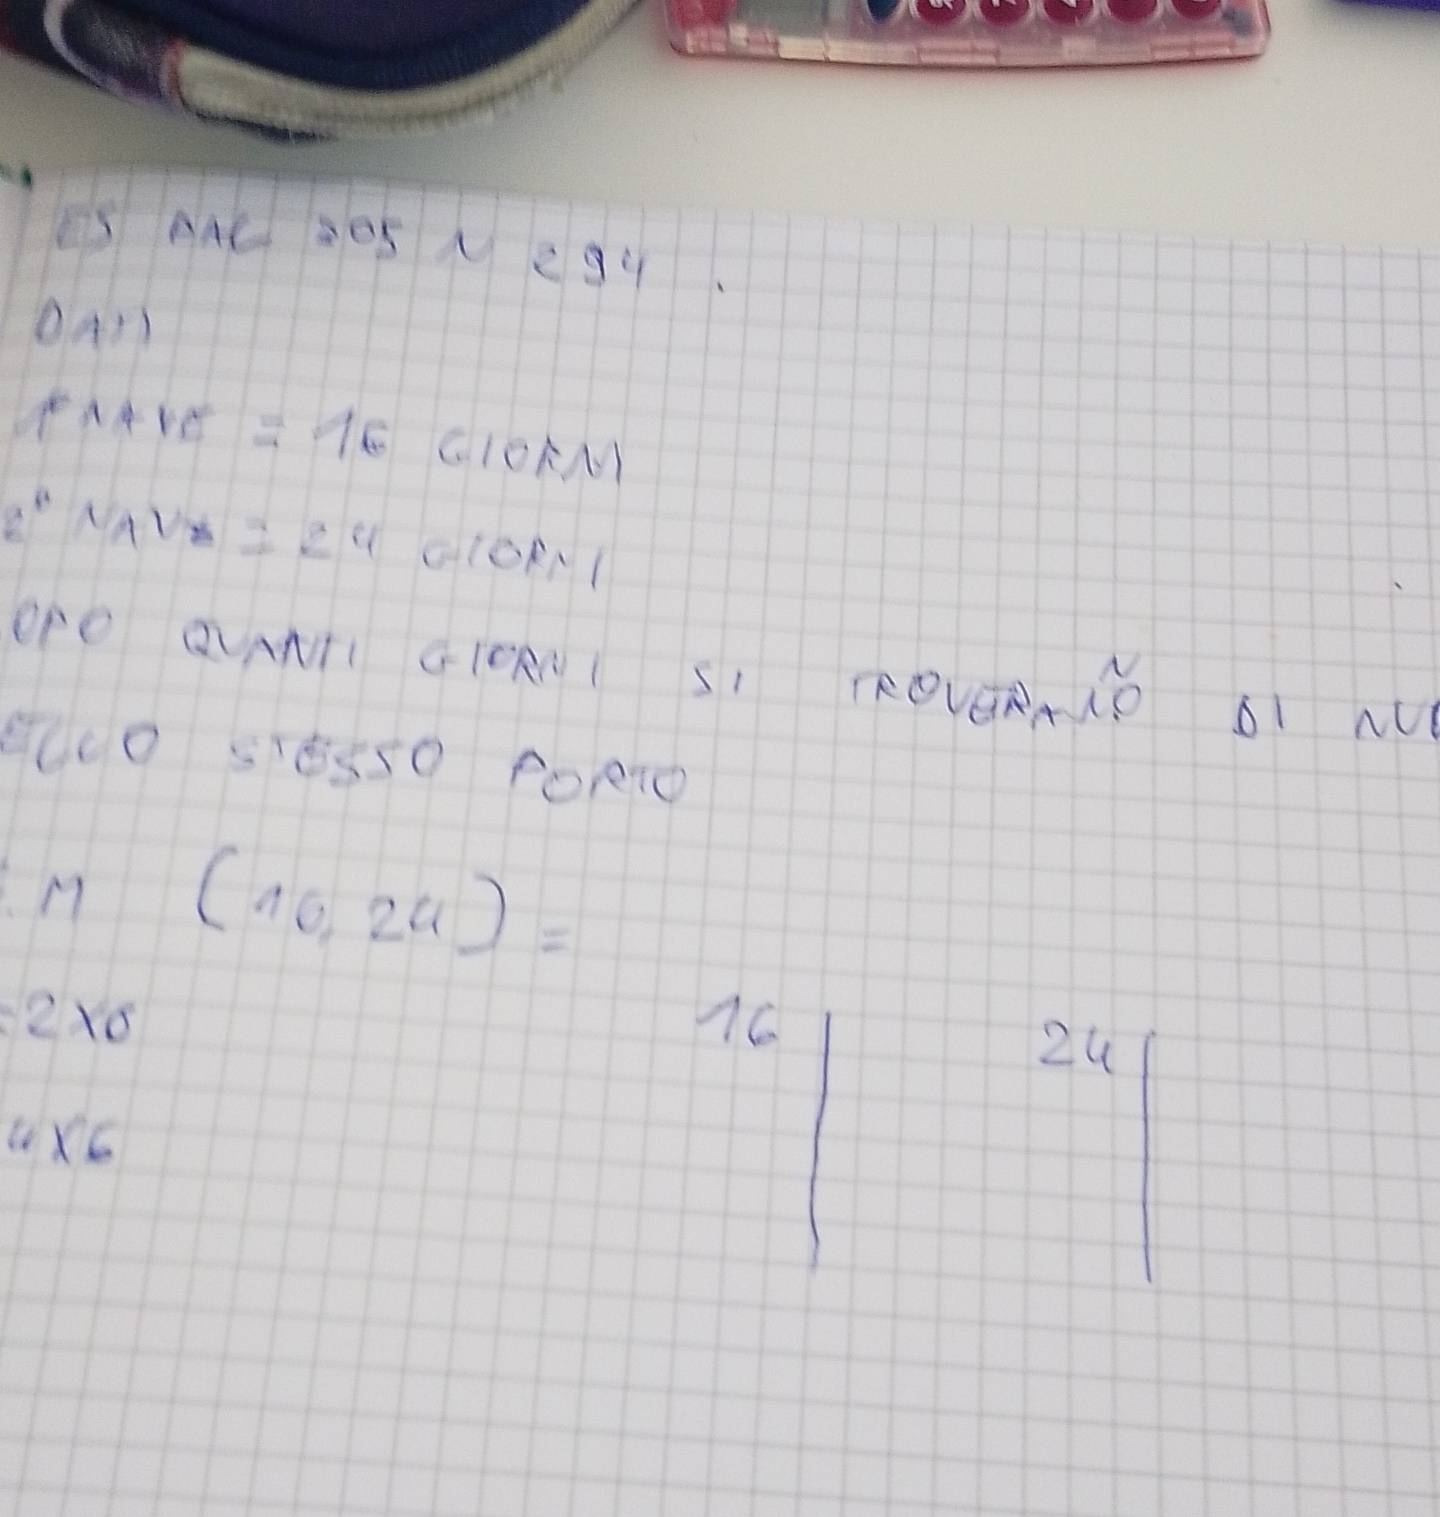 ES PAG 205 N 294.
DATI
1ª NAVE = 16 GIORNI
2ª NAVE = 24 GIORNI
OPO QUANTI GIORNI SI TROVERANNO DI NUO
ELLO STESSO PORTO
.M (16, 24) =
=2X8
16 24
4X6